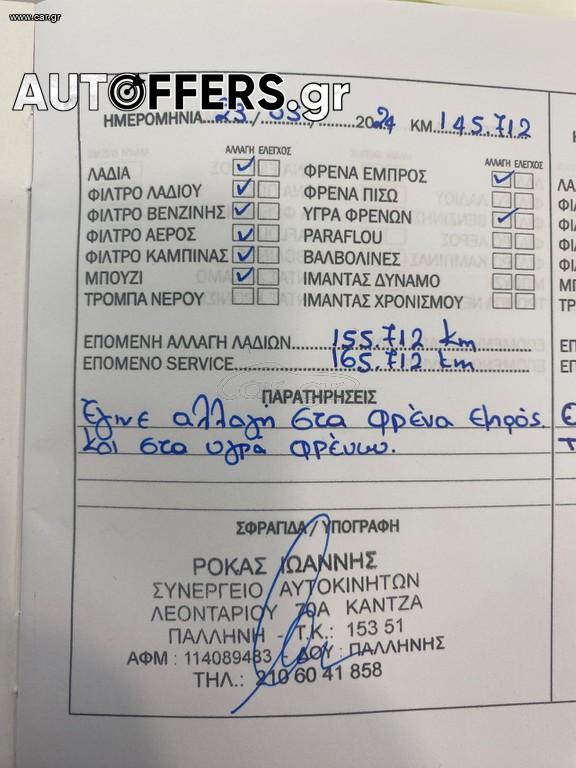 www.car.gr
AUTOFFERS.gr
ΗΜΕΡΟΜΗΝΙΑ 23/05/2024 ΚΜ. 145.712
ΑΛΛΑΓΗ ΕΛΕΓΧΟΣ ΑΛΛΑΓΗ ΕΛΕΓΧΟΣ
ΛΑΔΙΑ ✓ ΦΡΕΝΑ ΕΜΠΡΟΣ ✓
ΦΙΛΤΡΟ ΛΑΔΙΟΥ ✓ ΦΡΕΝΑ ΠΙΣΩ
ΦΙΛΤΡΟ ΒΕΝΖΙΝΗΣ ✓ ΥΓΡΑ ΦΡΕΝΩΝ ✓
ΦΙΛΤΡΟ ΑΕΡΟΣ ✓ PARAFLOU
ΦΙΛΤΡΟ ΚΑΜΠΙΝΑΣ ✓ ΒΑΛΒΟΛΙΝΕΣ
ΜΠΟΥΖΙ ✓ ΙΜΑΝΤΑΣ ΔΥΝΑΜΟ
ΤΡΟΜΠΑ ΝΕΡΟΥ ΙΜΑΝΤΑΣ ΧΡΟΝΙΣΜΟΥ
ΕΠΟΜΕΝΗ ΑΛΛΑΓΗ ΛΑΔΙΩΝ 155.712 km
ΕΠΟΜΕΝΟ SERVICE 165.712 km
ΠΑΡΑΤΗΡΗΣΕΙΣ
Έγινε αλλαγή στα φρένα εμπρός.
και στα υγρά φρένων.
ΣΦΡΑΓΙΔΑ / ΥΠΟΓΡΑΦΗ
ΡΟΚΑΣ ΙΩΑΝΝΗΣ
ΣΥΝΕΡΓΕΙΟ ΑΥΤΟΚΙΝΗΤΩΝ
ΛΕΟΝΤΑΡΙΟΥ 70Α ΚΑΝΤΖΑ
ΠΑΛΛΗΝΗ - Τ.Κ.: 153 51
ΑΦΜ : 114089483 - ΔΟΥ : ΠΑΛΛΗΝΗΣ
ΤΗΛ.: 210 60 41 858